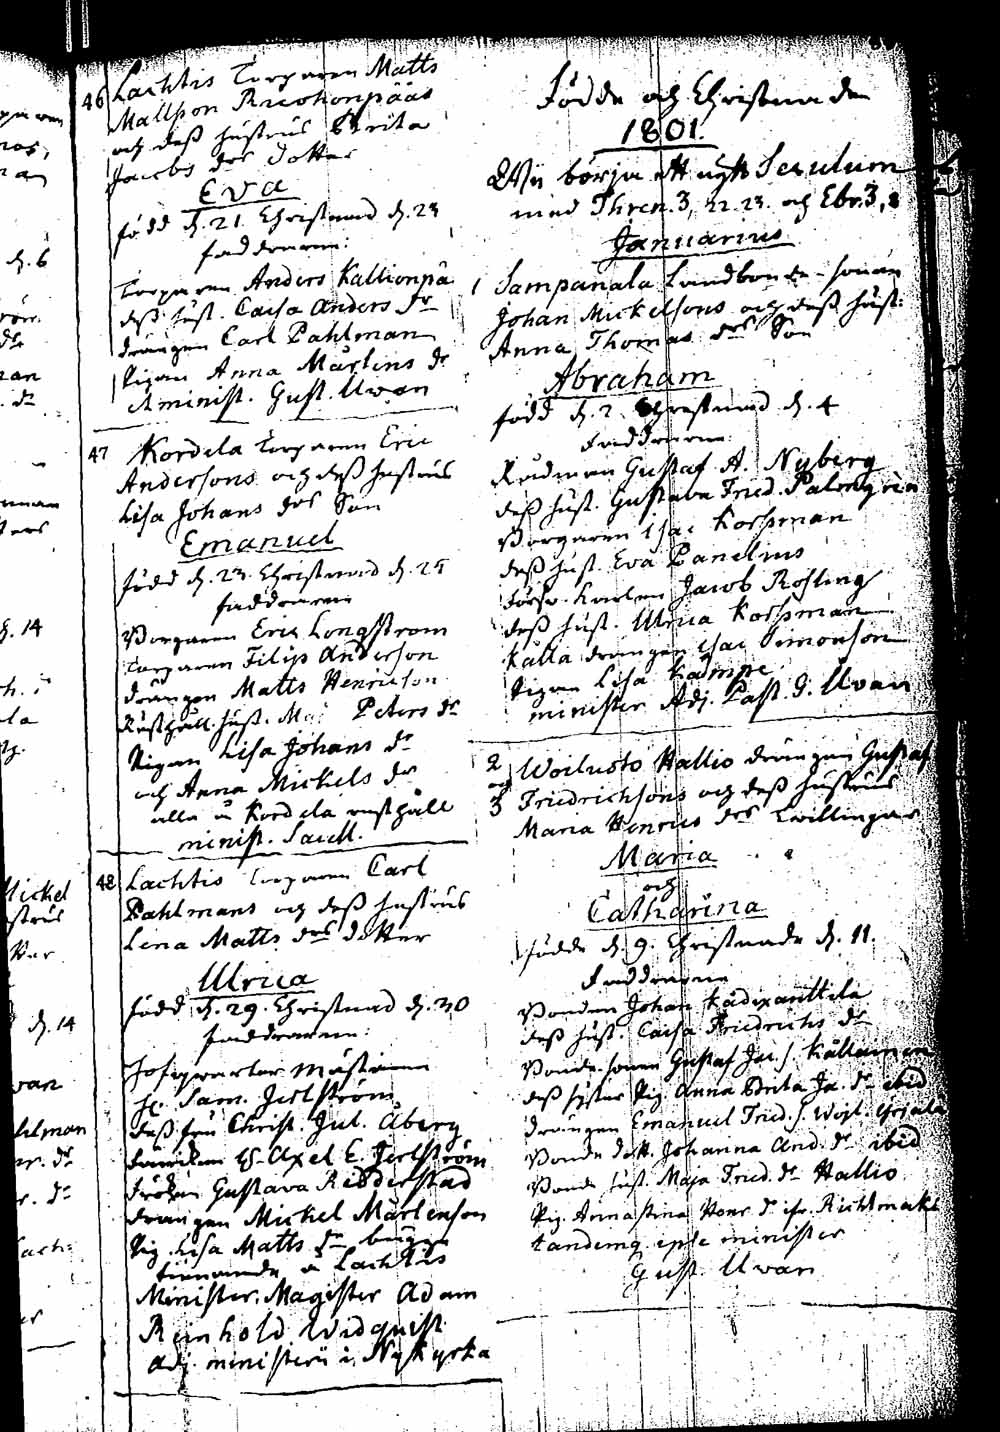 46 Lachtis Torparen Matts
Mattsson Ruohonpääs
och dess hustrus Brita
Jacobs dr dotter
Eva
född d. 21. Christnad d. 23
faddrarne:
Torparen Anders Kallionpä
dess hust. Caisa Anders dr
drängen Carl Pahlman
Pigan Anna Mårtens dr
minist. Gust. Uvan
47 Kordela Torparen Eric
Andersons och dess hustrus
Lisa Johans drs Son
Emanuel
född d. 23. Christnad d. 25
faddrarne
Borgaren Eric Longström
Torparen Filip Anderson
drängen Matts Henricson
Rusthåll. hust. Peters dr
Pigan Lisa Johans dr
och Anna Mickels dr
alla i Kordela rusthåll
minist. Saxell.
48 Lachtis Torparen Carl
Pahlmans och dess hustrus
Lena Matts drs dotter
Ulrica
född d. 29. Christnad d. 30
faddrarne:
Hofqvarter mästaren
H. Sam. Jerlström
dess fru Christ. Jul. Åberg
Fändriken H. Axel E. Jerlström
Fröken Gustava Ridderstad
drängen Mickel Mårtenson
Pig. Lisa Matts dr begge
tienande i Lachtis
Minister. Magister Adam
Reinhold Widqvist
adj. ministerii i Nykyrka
Födde och Christnade
1801.
Wij börja ett nytt Seculum
med Thren. 3, 22. 23. och Ebr. 3, 8
Januarius
1 Sampanala Landbonde-sonen
Johan Mickelsons och dess hust:
Anna Thomas drs Son
Abraham
född d. 2. Christnad d. 4
Faddrarne:
Rudman Gustaf A. Nyberg
dess hust. Gustava Fried. Palmgren
Borgaren Isac Korsman
dess hust. Eva Panelius
Karlen Jacob Rosling
dess hust. Ulrica Korsman
Källa drängen Isac Simonson
Pigan Lisa Kämpe
minister Adj. Past. G. Uvan
2 Woiluoto Hallio drängen Gustaf
och
3 Fredrichsons och dess hustrus
Maria Henrics drs Twillingar
Maria
och
Catharina
födde d. 9. Christnade d. 11.
Faddrarne
Bonden Johan Kädixanttila
dess hust. Caisa Friedrichs dr
Bonde sonen Gustaf Jac. s. Källainen
dess syster Pig. Anna Brita Ja. dr ibid
drängen Emanuel Fried. s.
Bonde dott. Johanna And. dr ibid
Bonde hust. Maja Fried. dr Hallio
Pig. Annastina Henr. dr
tandemq ipse minister
Gust. Uvan
d. 6
d. 14
Mickel
d. 14